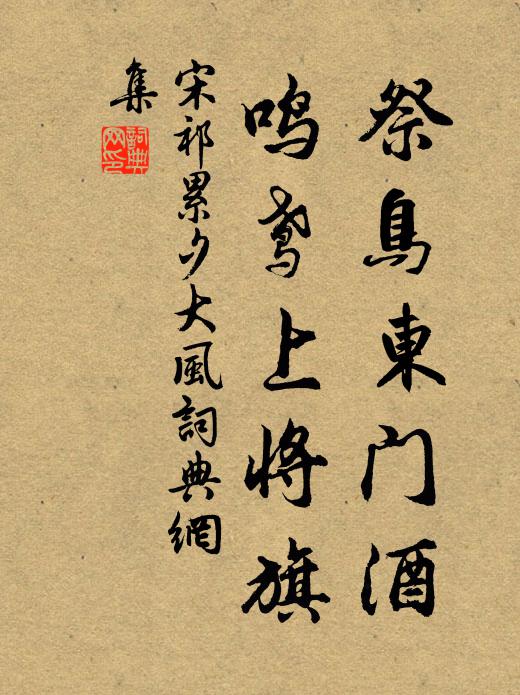 祭鳥東门酒
鸣鸢上将旗
宋祁累夕大風詞典網
集
詞典
网印